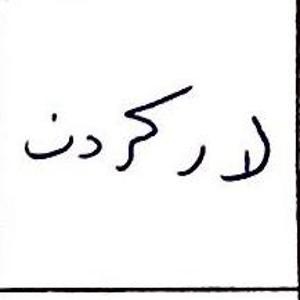 لار کردن